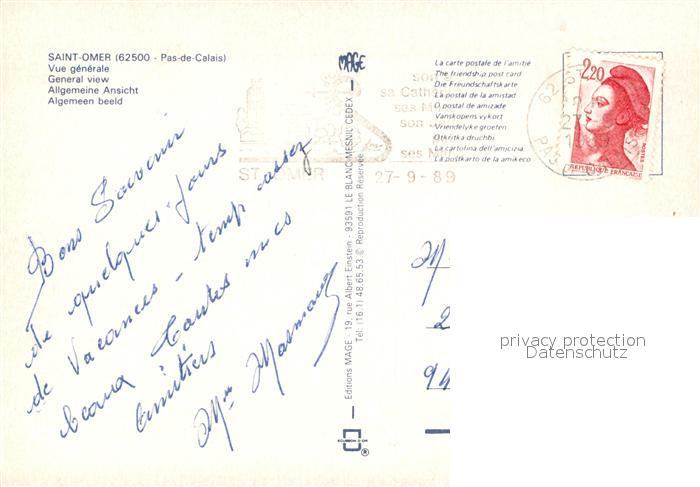 SAINT-OMER (62500 - Pas-de-Calais)
Vue générale
General view
Allgemeine Ansicht
Algemeen beeld
Bons Souvenir
de quelques jours
de Vacances - temp assez
beaux Toutes mes
Amitiés
Mme
MAGE
Editions MAGE - 19, rue Albert Einstein - 93591 LE BLANC MESNIL CEDEX
Tél: (16.1) 48.65.53 © Reproduction Réservée
ECUSSON D'OR
®
sa Cath
ses M
son
ses M
ST OMER 27-9-89
La carte postale de l'amitié
The friendship post card
Die Freundschaftskarte
La postal de la amistad
O postal de amizade
Vanskapens vykort
Vriendelyke groeten
Otkritka druchbi
La cartolina dell'amicizia
La postkarto de la amikeco
2,20
REPUBLIQUE FRANÇAISE
62 ST
27
PAS
2
94
privacy protection
Datenschutz